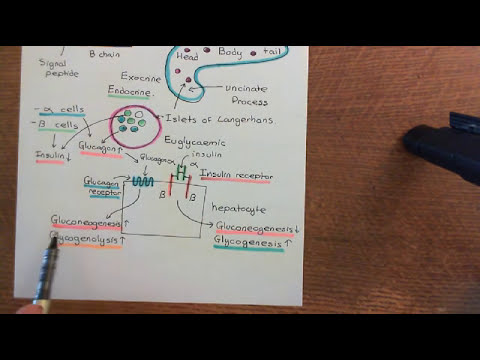 B chain
Signal
peptide
Head
Body
tail
Exocrine
Endocrine
uncinate
Process
- α cells
- β cells
Islets of Langerhans
Glucagon ↑
Insulin ↓
Euglycaemic
Glucagon
insulin
α
α
Glucagon
receptor
Insulin receptor
β
β
hepatocyte
Gluconeogenesis ↑
Glycogenolysis ↑
Gluconeogenesis ↓
Glycogenesis ↑